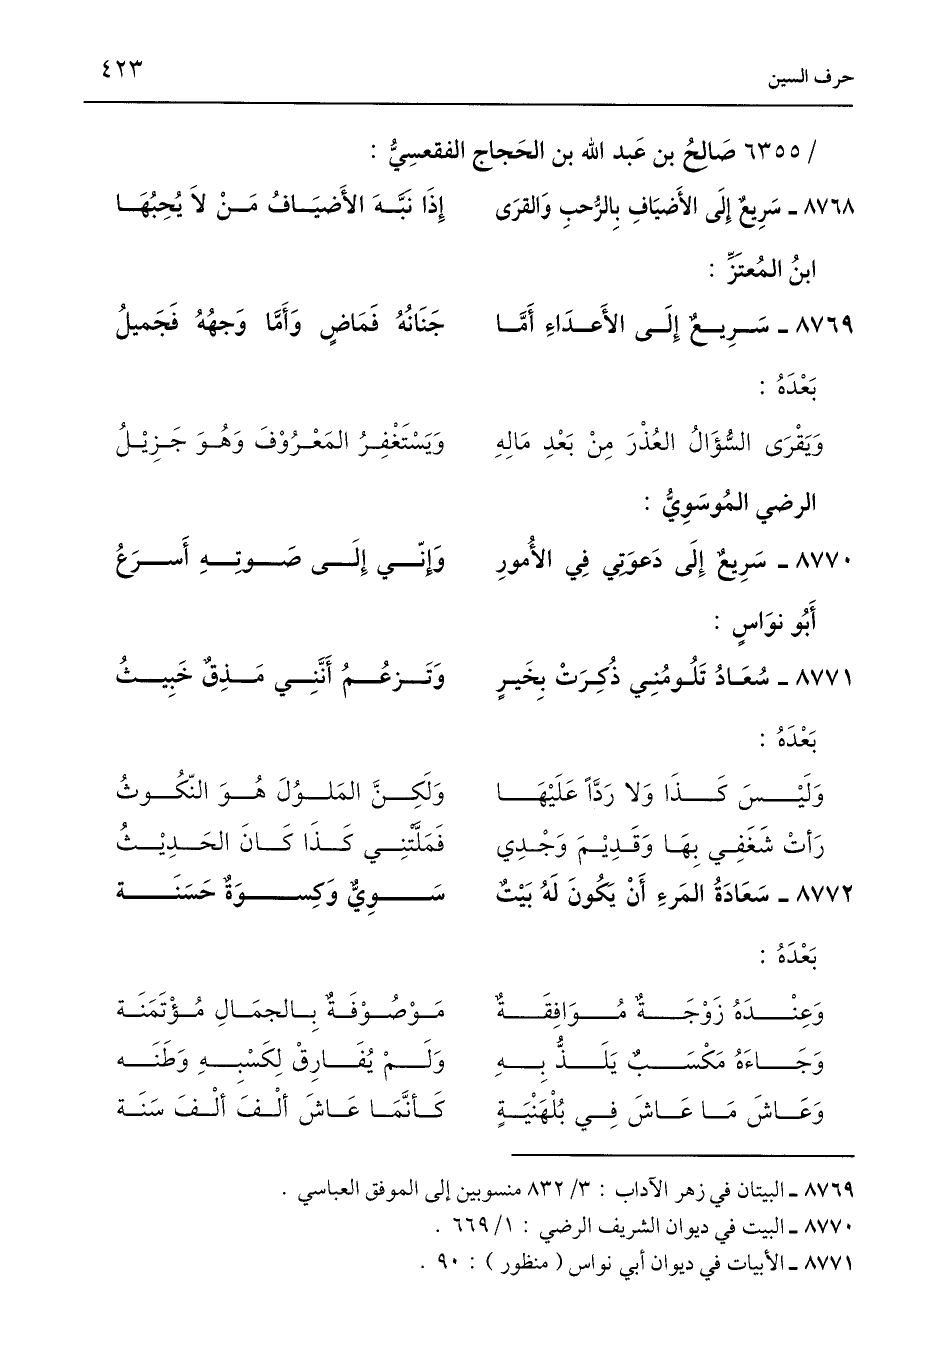 حرف السين ٤٢٣
/ ٦٣٥٥ صَالِحُ بن عَبد الله بن الحَجاج الفقعسِيُّ :
٨٧٦٨ ـ سَرِيعٌ إِلَى الأَضيَافِ بِالرُّحبِ وَالقرَى إِذَا نَبَّهَ الأَضيَافُ مَنْ لاَ يُحِبُهَا
ابنُ المُعتَزِّ :
٨٧٦٩ ـ سَرِيعٌ إِلَى الأَعدَاءِ أَمَّا جَنَانُهُ فَمَاضٍ وَأَمَّا وَجهُهُ فَجَميلُ
بَعْدَهُ :
وَيَقْرَى السُّؤَالُ العُذْرَ مِنْ بَعْدِ مَالِهِ وَيَسْتَغْفِرُ المَعْرُوْفَ وَهُوَ جَزِيْلُ
الرضي المُوسَوِيُّ :
٨٧٧٠ ـ سَرِيعٌ إِلَى دَعوَتِي فِي الأُمورِ وَإِنّي إِلَى صَوتِهِ أَسرَعُ
أَبُو نوَاسٍ :
٨٧٧١ ـ سُعَادُ تَلُومُنِي ذُكِرَتْ بِخَيرٍ وَتَزعُمُ أَنَّنِي مَذِقٌ خَبِيثُ
بَعْدَهُ :
وَلَيْسَ كَذَا وَلا رَدَّاً عَلَيْهَا وَلَكِنَّ المَلُوْلَ هُوَ النّكُوثُ
رَأتْ شَغَفِي بِهَا وَقَدِيْمَ وَجْدِي فَمَلَّتْنِي كَذَا كَانَ الحَدِيْثُ
٨٧٧٢ ـ سَعَادَةُ المَرءِ أَنْ يَكُونَ لَهُ بَيْتٌ سَوِيٌّ وَكِسوَةٌ حَسَنَة
بَعْدَهُ :
وَعِنْدَهُ زَوْجَةٌ مُوَافِقَةٌ مَوْصُوْفَةٌ بِالجمَالِ مُؤْتَمَنَة
وَجَاءَهُ مَكْسَبٌ يَلَذُّ بِهِ وَلَمْ يُفَارِقْ لِكَسْبِهِ وَطَنَه
وَعَاشَ مَا عَاشَ فِي بُلْهَنْيَةٍ كَأنَّمَا عَاشَ ألْفَ ألْفَ سَنَة
٨٧٦٩ ـ البيتان في زهر الآداب : ٣/ ٨٣٢ منسوبين إلى الموفق العباسي .
٨٧٧٠ ـ البيت في ديوان الشريف الرضي : ١/ ٦٦٩ .
٨٧٧١ ـ الأبيات في ديوان أبي نواس ( منظور ) : ٩٠ .